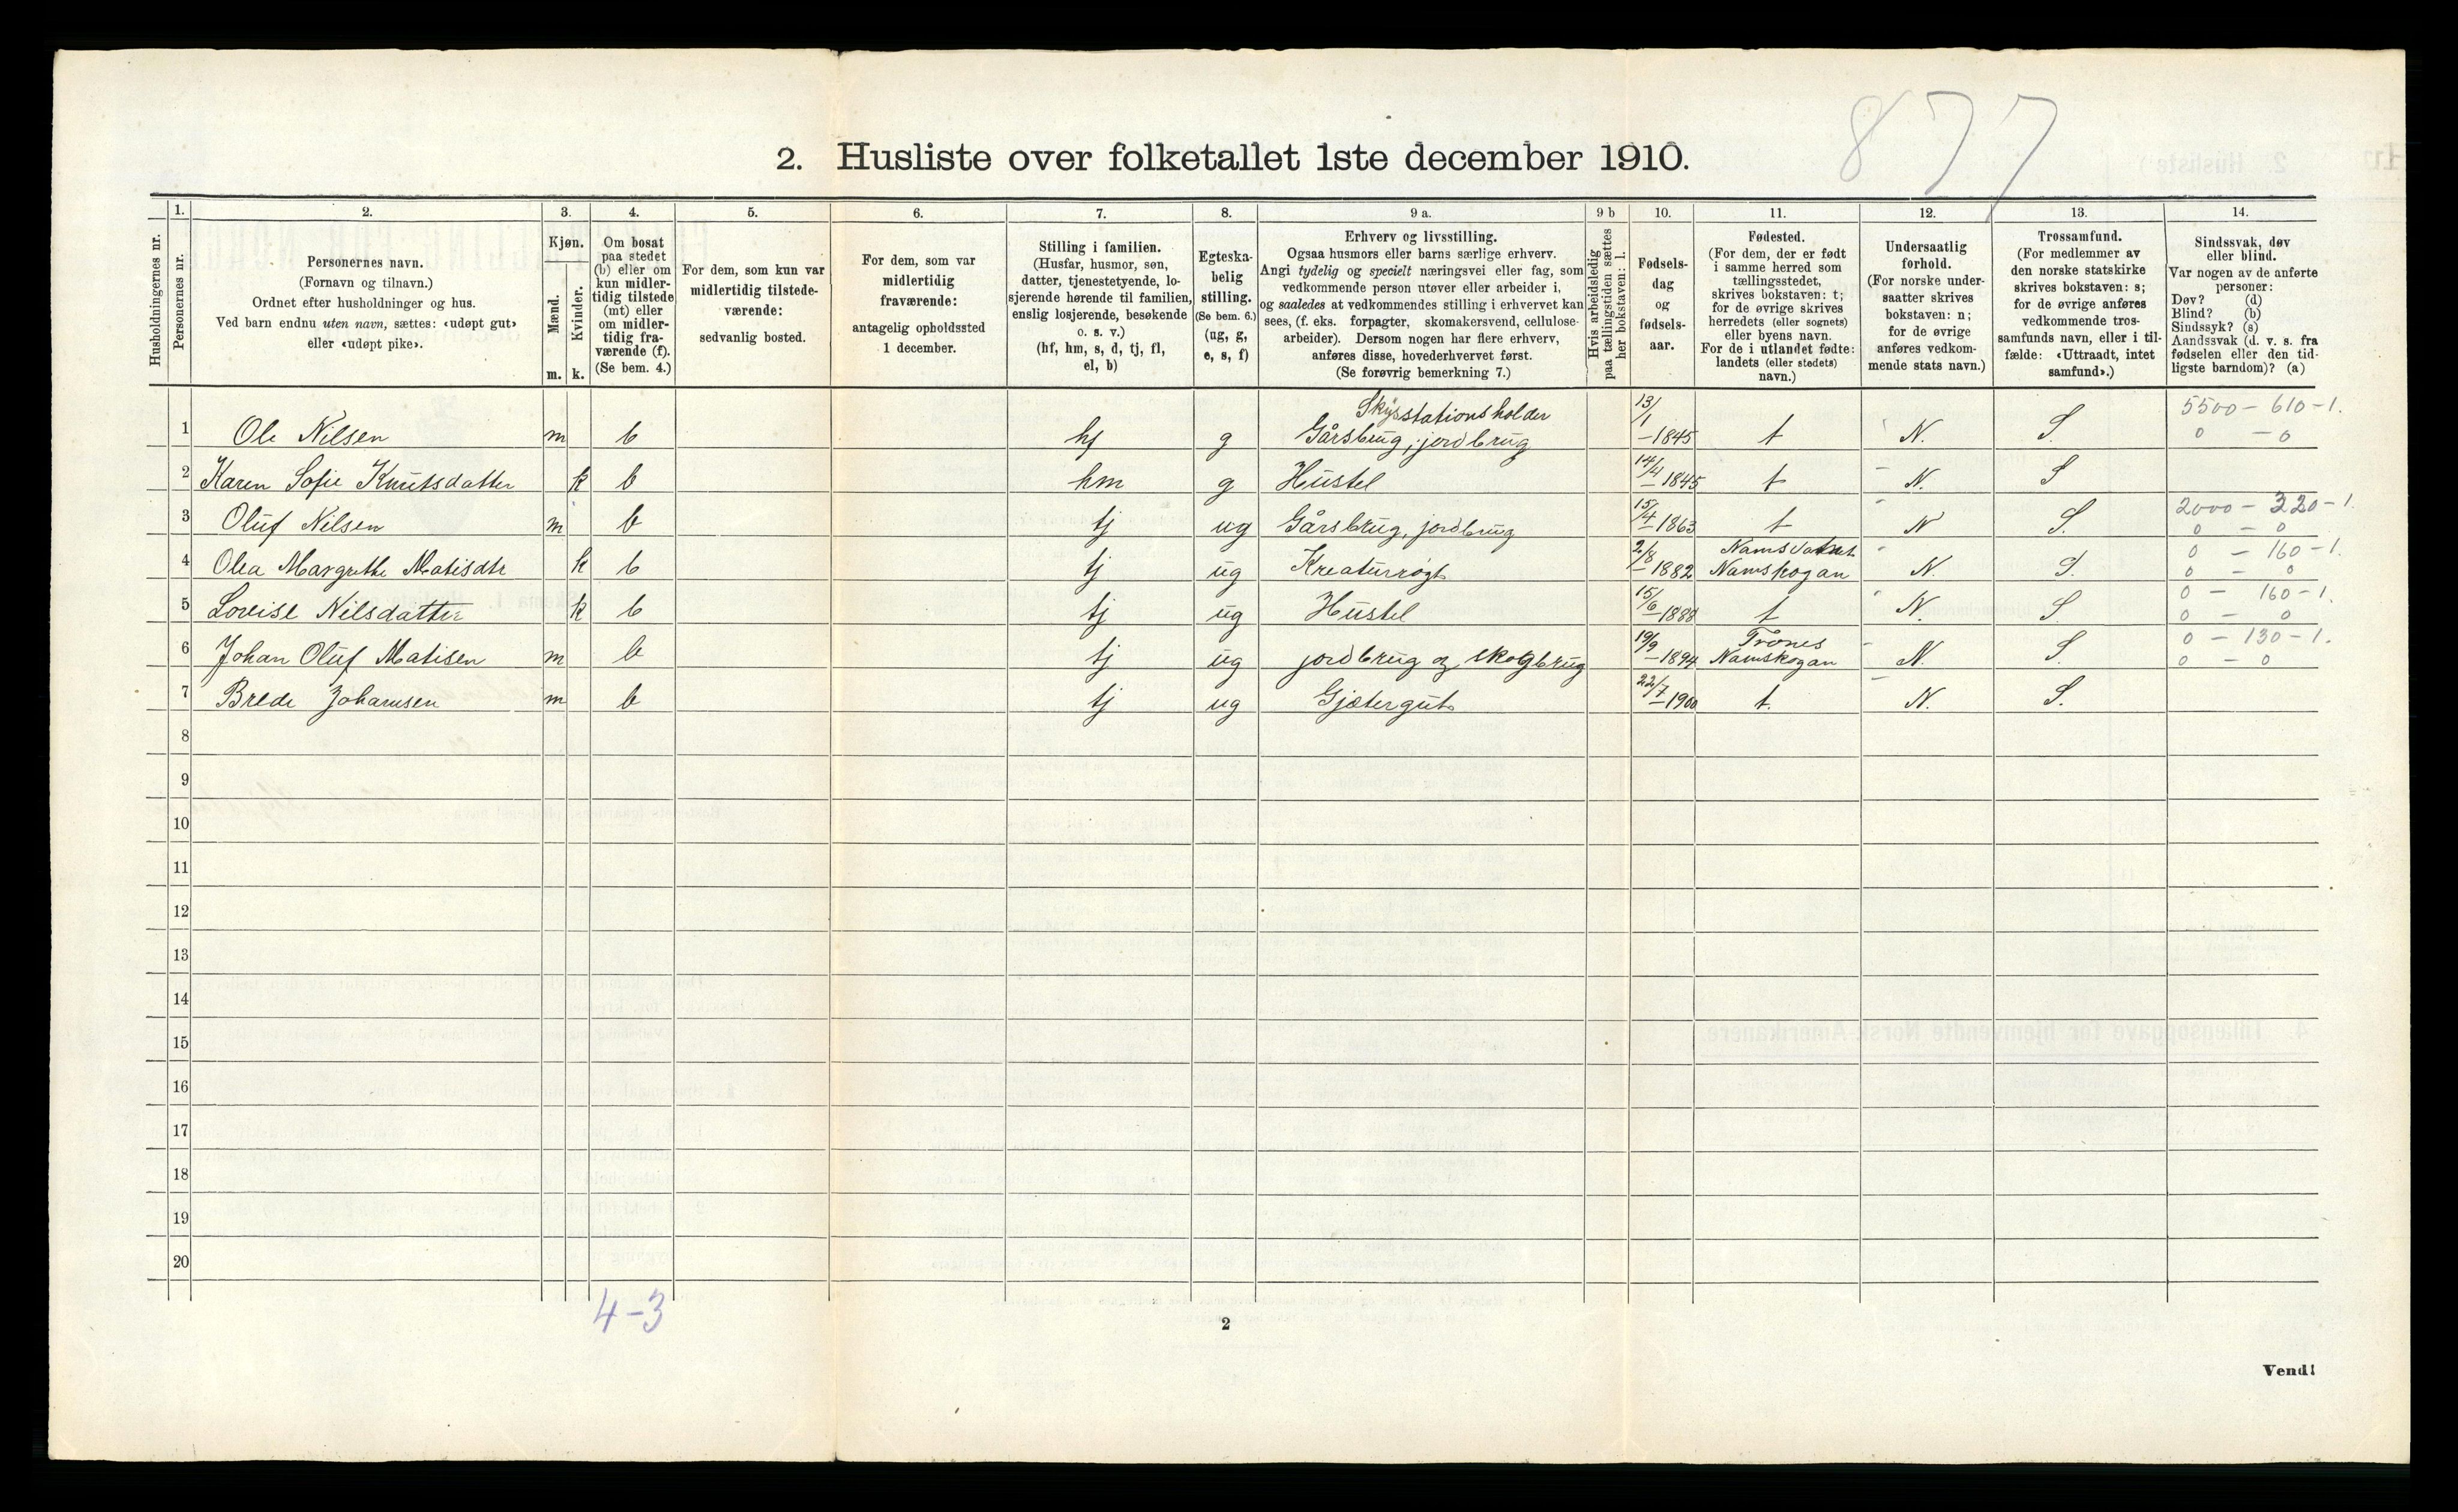 877
2. Husliste over folketallet 1ste december 1910.
Husholdningernes nr.
1. Personernes nr.
2. Personernes navn.
(Fornavn og tilnavn.)
Ordnet efter husholdninger og hus.
Ved barn endnu uten navn, sættes: «udøpt gut»
eller «udøpt pike».
3. Kjøn.
Mænd. m.
Kvinder. k.
4. Om bosat
paa stedet
(b) eller om
kun midler-
tidig tilstede
(mt) eller
om midler-
tidig fra-
værende (f).
(Se bem. 4.)
5. For dem, som kun var
midlertidig tilstede-
værende:
sedvanlig bosted.
6. For dem, som var
midlertidig
fraværende:
antagelig opholdssted
1 december.
7. Stilling i familien.
(Husfar, husmor, søn,
datter, tjenestetyende, lo-
sjerende hørende til familien,
enslig losjerende, besøkende
o. s. v.)
(hf, hm, s, d, tj, fl,
el, b)
8. Egteska-
belig
stilling.
(Se bem. 6.)
(ug, g,
e, s, f)
9 a. Erhverv og livsstilling.
Ogsaa husmors eller barns særlige erhverv.
Angi tydelig og specielt næringsvei eller fag, som
vedkommende person utøver eller arbeider i,
og saaledes at vedkommendes stilling i erhvervet kan
sees, (f. eks. forpagter, skomakersvend, cellulose-
arbeider). Dersom nogen har flere erhverv,
anføres disse, hovederhvervet først.
(Se forøvrig bemerkning 7.)
9 b Hvis arbeidsledig
paa tællingstiden sættes
her bokstaven: l.
10. Fødsels-
dag
og
fødsels-
aar.
11. Fødested.
(For dem, der er født
i samme herred som
tællingsstedet,
skrives bokstaven: t;
for de øvrige skrives
herredets (eller sognets)
eller byens navn.
For de i utlandet fødte:
landets (eller stedets)
navn.)
12. Undersaatlig
forhold.
(For norske under-
saatter skrives
bokstaven: n;
for de øvrige
anføres vedkom-
mende stats navn.)
13. Trossamfund.
(For medlemmer av
den norske statskirke
skrives bokstaven: s;
for de øvrige anføres
vedkommende tros-
samfunds navn, eller i til-
fælde: «Uttraadt, intet
samfund».)
14. Sindssvak, døv
eller blind.
Var nogen av de anførte
personer:
Døv? (d)
Blind? (b)
Sindssyk? (s)
Aandssvak (d. v. s. fra
fødselen eller den tid-
ligste barndom)? (a)
Skysstationsholder 13/1 5500 - 610 - 1.
1 Ole Nilsen m b hf g Gårsbrug, jordbrug - 1845 t N. S. 0 - 0
2 Karen Sofie Knutsdatter k b hm g Hustel 14/4 - 1845 t N. S
3 Oluf Nilsen m b tj ug Gårsbrug, jordbrug 15/4 - 1863 t N S. 2000 - 320 - 1.
0 - 0
Namsvatnet 0 - 160 - 1.
4 Olea Margrethe Matisdtr k b tj ug Kreaturrøgt 2/8 - 1882 Namskogan N. S. 0 - 0
5 Lovise Nilsdatter k b tj ug Hustel 15/6 - 1888 t N. S. 0 - 160 - 1.
0 - 0
Trones 0 - 130 - 1.
6 Johan Oluf Matisen m b tj ug jordbrug og skogbrug 19/9 - 1894 Namskogan N. S. 0 - 0
7 Brede Johansen m b tj ug Gjætergut 22/7 - 1900 t. N. S.
8
9
10
11
12
13
14
15
16
17
18
19
20
4-3
2
Vend!